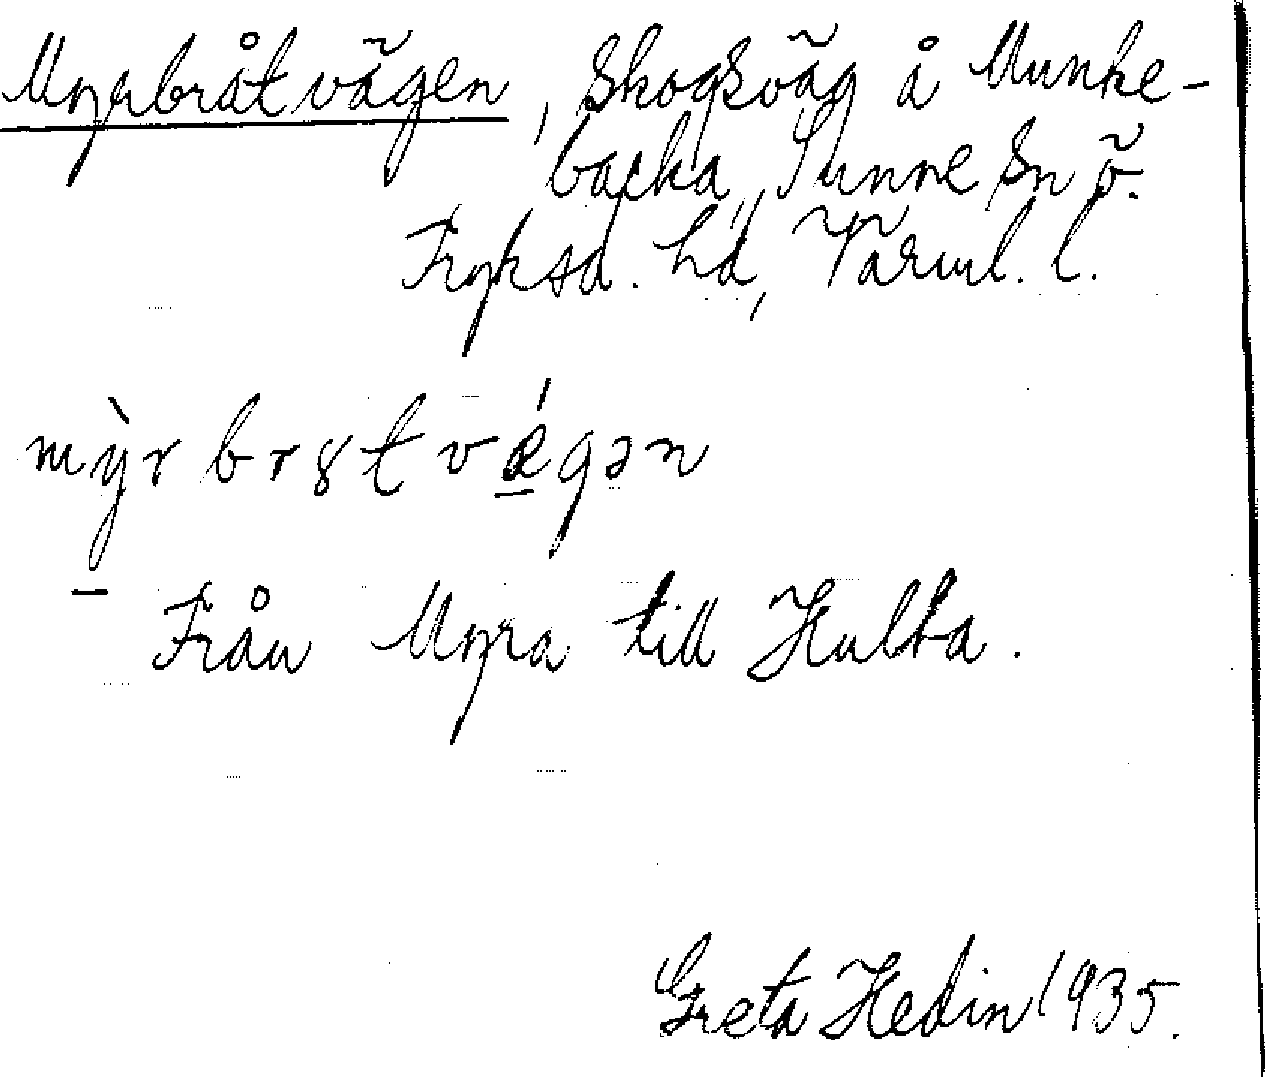 Myrbråtvägen, Skogsväg å Munke-
backa, Sunne sn ö.
Fryksd. hd, Värml. l.
mỳr br8t vǽgən
Från Myra till Hulta.
Greta Hedin 1935.